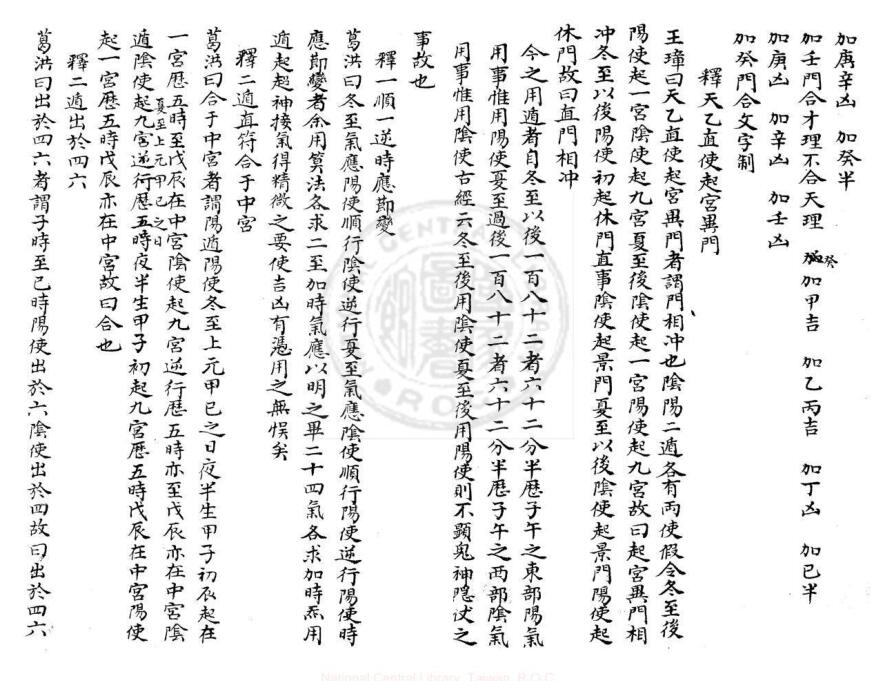 加庚辛凶　加癸半
加壬門合才理不合天理　加癸　加甲吉　加乙丙吉　加丁凶　加已半
加庚凶　加辛凶　加壬凶
加癸門合文字制
釋天乙直使起宮異門
王璋曰天乙直使起宮異門者謂門相冲也陰陽二遁各有兩使假令冬至後
陽使起一宮陰使起九宮夏至後陰使起一宮陽使起九宮故曰起宮異門相
冲冬至以後陽使初起休門直事陰使起景門夏至以後陰使起景門陽使起
休門故曰直門相冲
今之用遁者自冬至以後一百八十二者六十二分半歷子午之東部陽氣
用事惟用陽使夏至過後一百八十二者六十二分半歷子午之西部陰氣
用事惟用陰使古經云冬至後用陰使夏至後用陽使則不顯鬼神隱伏之
事故也
釋一順一逆時應節變
葛洪曰冬至氣應陽使順行陰使逆行夏至氣應陰使順行陽使逆行陽使時
應節變者余用算法各求二至加時氣應以明之畢二十四氣各求加時炁用
遁起超神接氣得精微之要使吉凶有憑用之無悞矣
釋二遁直符合于中宮
葛洪曰合于中宮者謂陽遁陽使冬至上元甲已之日夜半生甲子初起在
一宮歷五時至戊辰在中宮陰使起九宮逆行歷五時亦至戊辰亦在中宮陰
遁陰使夏至上元甲已之日起九宮逆行歷五時夜半生甲子初起九宮歷五時戊辰在中宮陽使
起一宮歷五時戊辰亦在中宮故曰合也
釋二遁出於四六
葛洪曰出於四六者謂子時至巳時陽使出於六陰使出於四故曰出於四六
National Central Library, Taiwan, R.O.C